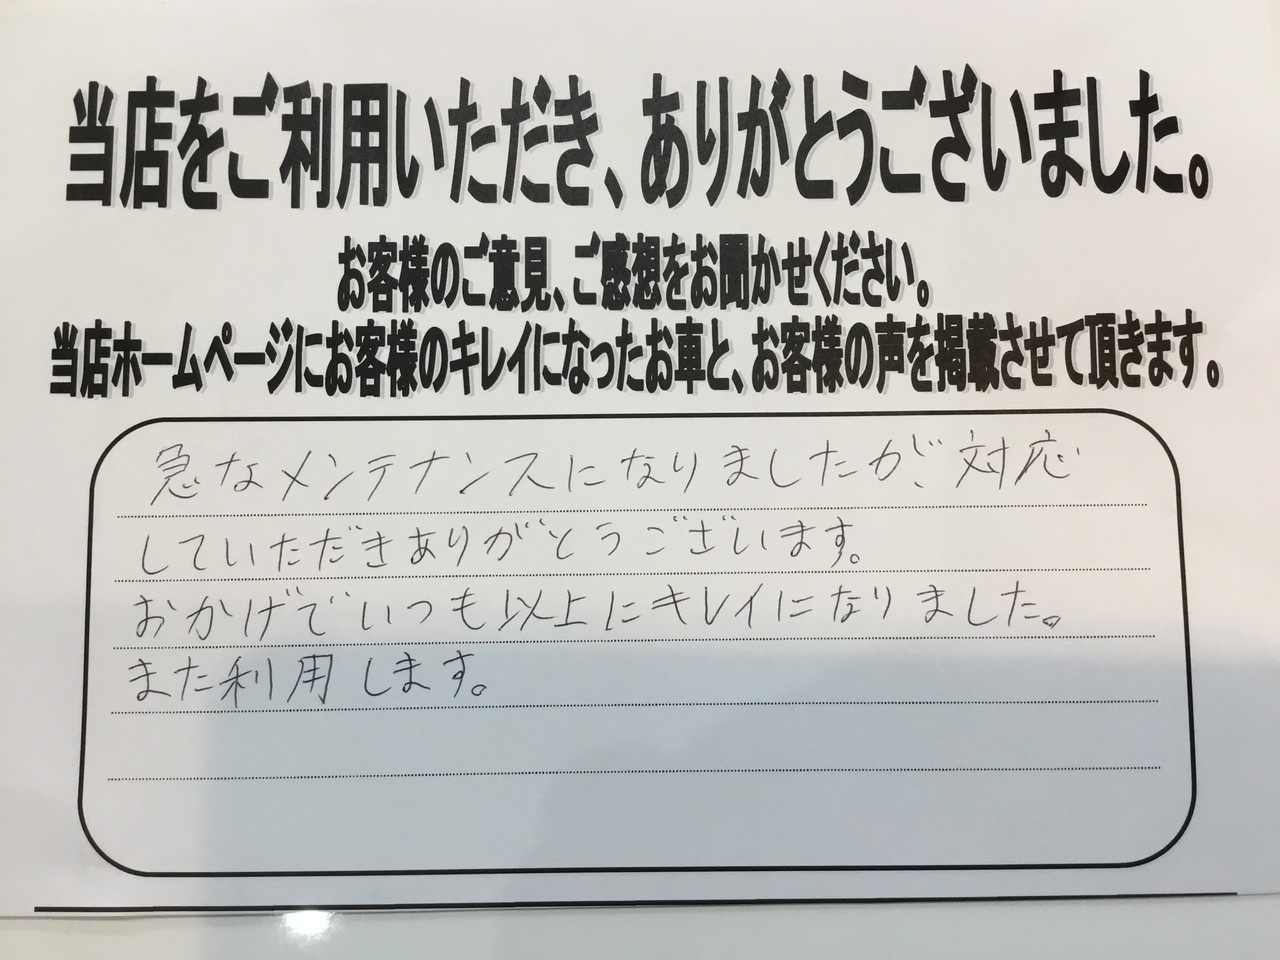 当店をご利用いただき、ありがとうございました。
お客様のご意見、ご感想をお聞かせください。
当店ホームページにお客様のキレイになったお車と、お客様の声を掲載させて頂きます。
急なメンテナンスになりましたが、対応
していただきありがとうございます。
おかげでいつも以上にキレイになりました。
また利用します。